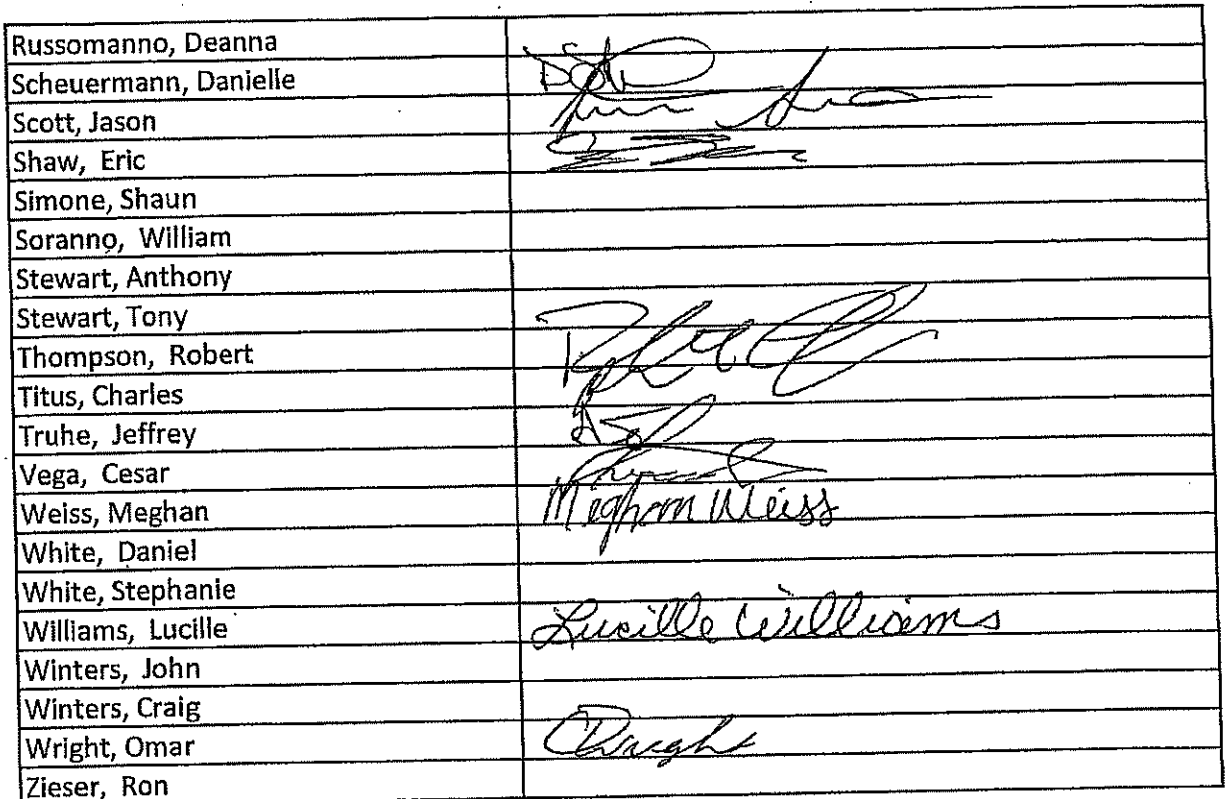 Russomanno, Deanna
Scheuermann, Danielle
Scott, Jason
Shaw, Eric
Simone, Shaun
Soranno, William
Stewart, Anthony
Stewart, Tony
Thompson, Robert
Titus, Charles
Truhe, Jeffrey
Vega, Cesar
Weiss, Meghan Meghan Weiss
White, Daniel
White, Stephanie
Williams, Lucille Lucille Williams
Winters, John
Winters, Craig
Wright, Omar
Zieser, Ron